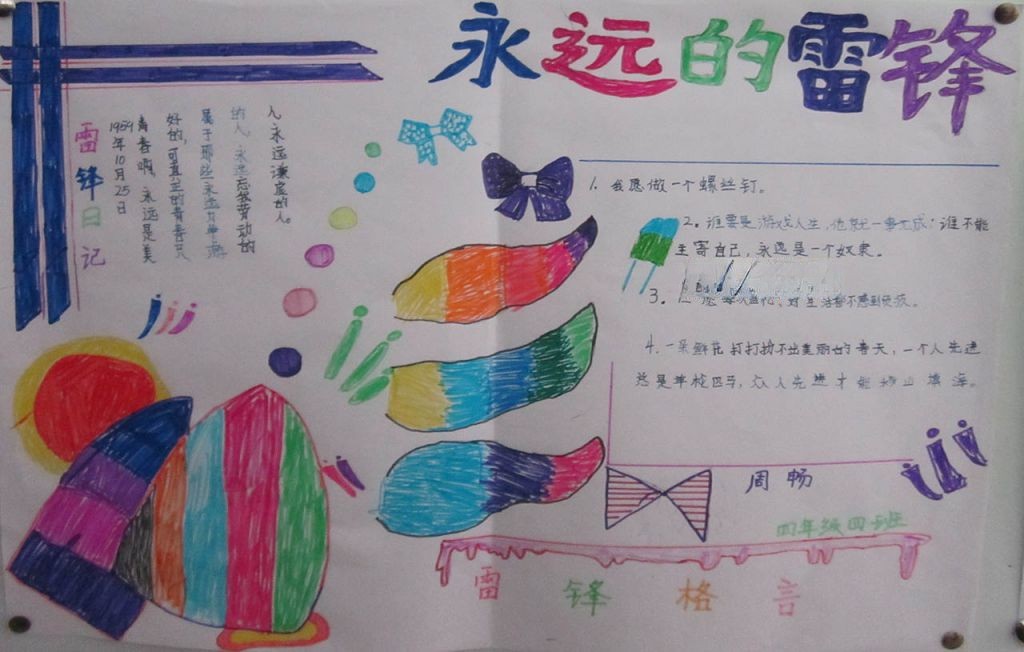 永远的雷锋
雷锋日记
1959年10月25日
青春啊，永远是美
好的，可真正的青春只
属于那些永远力争上游
的人，永远忘我劳动的
人，永远谦虚的人。
1. 我愿做一个螺丝钉。
2。谁要是游戏人生，他就一事无成；谁不能
主宰自己，永远是一个奴隶。
3。
对生活都不感到负疚。
4.一朵鲜花打扮不出美丽的春天，一个人先进
总是单枪匹马，众人先进才能移山填海。
周畅
四年级四班
雷锋格言